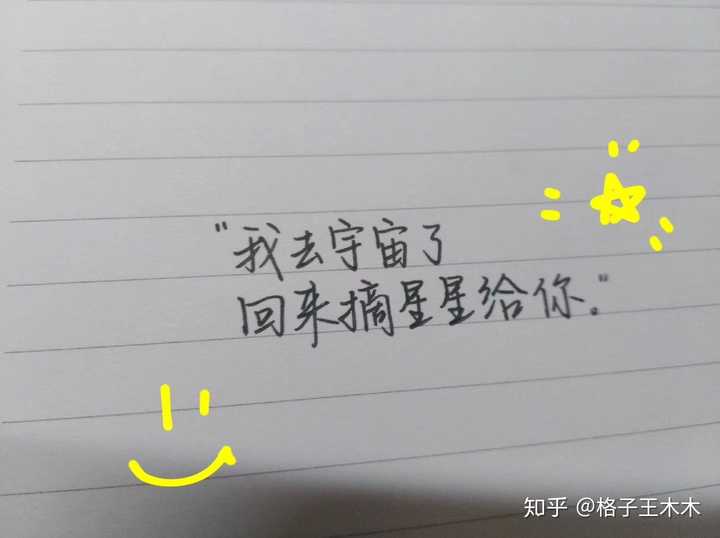 "我去宇宙了
回来摘星星给你。"
知乎 @格子王木木